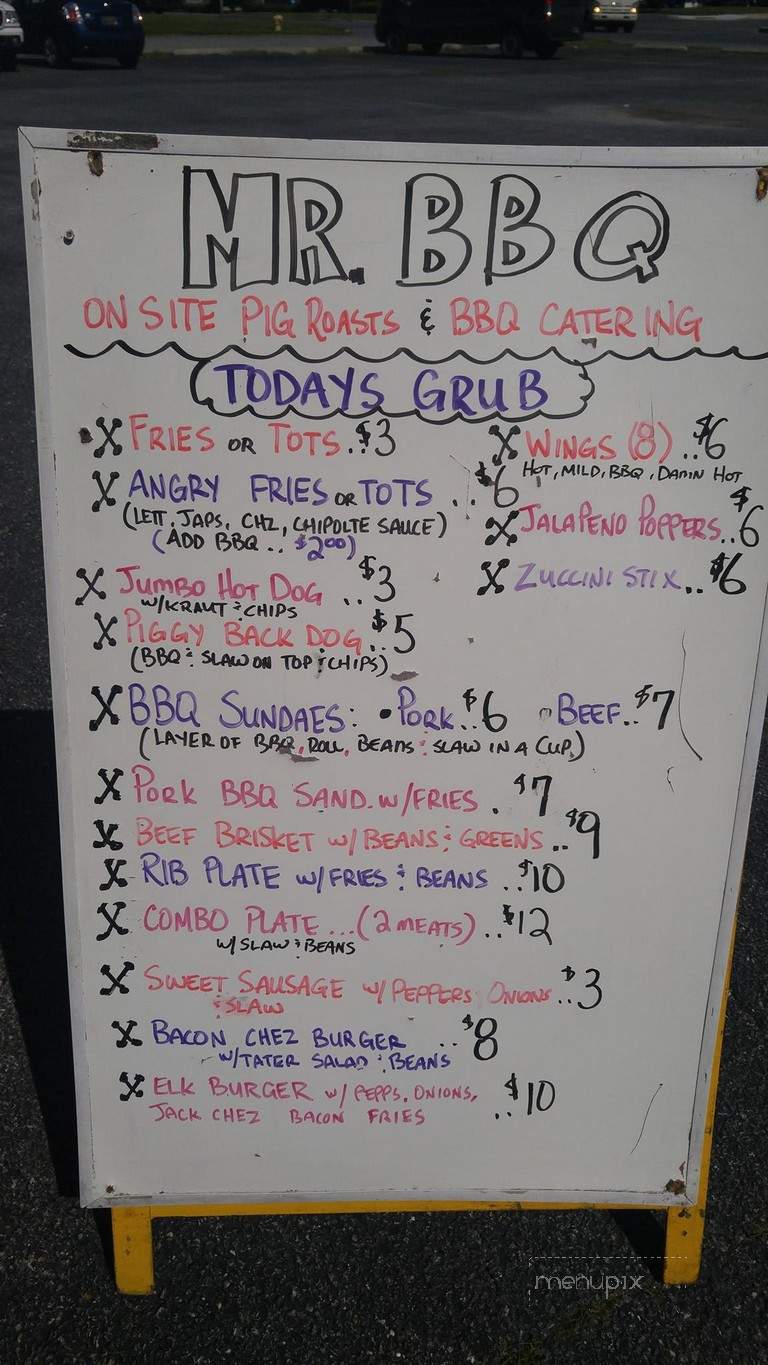 MR. BBQ
ON SITE PIG ROASTS & BBQ CATERING
TODAYS GRUB
FRIES OR TOTS..$3
ANGRY FRIES OR TOTS ...$6
(LETT, JAPS, CHZ, CHIPOLTE SAUCE)
(ADD BBQ.. $2.00)
JUMBO HOT DOG ..$3
W/KRAUT & CHIPS
PIGGY BACK DOG..$5
(BBQ & SLAW ON TOP & CHIPS)
WINGS (8)..$6
HOT, MILD, BBQ, DAMN HOT
JALAPENO POPPERS..$6
ZUCCINI STIX..$6
BBQ SUNDAES: •PORK..$6 •BEEF..$7
(LAYER OF BBQ, ROLL, BEANS & SLAW IN A CUP)
PORK BBQ SAND. W/FRIES . $7
BEEF BRISKET W/BEANS & GREENS ..$9
RIB PLATE W/FRIES & BEANS ..$10
COMBO PLATE...(2 MEATS)..$12
W/SLAW & BEANS
SWEET SAUSAGE W/PEPPERS ONIONS..$3
& SLAW
BACON CHEZ BURGER ..$8
W/TATER SALAD & BEANS
ELK BURGER W/ PEPPS, ONIONS,
JACK CHEZ BACON FRIES ..$10
menupix